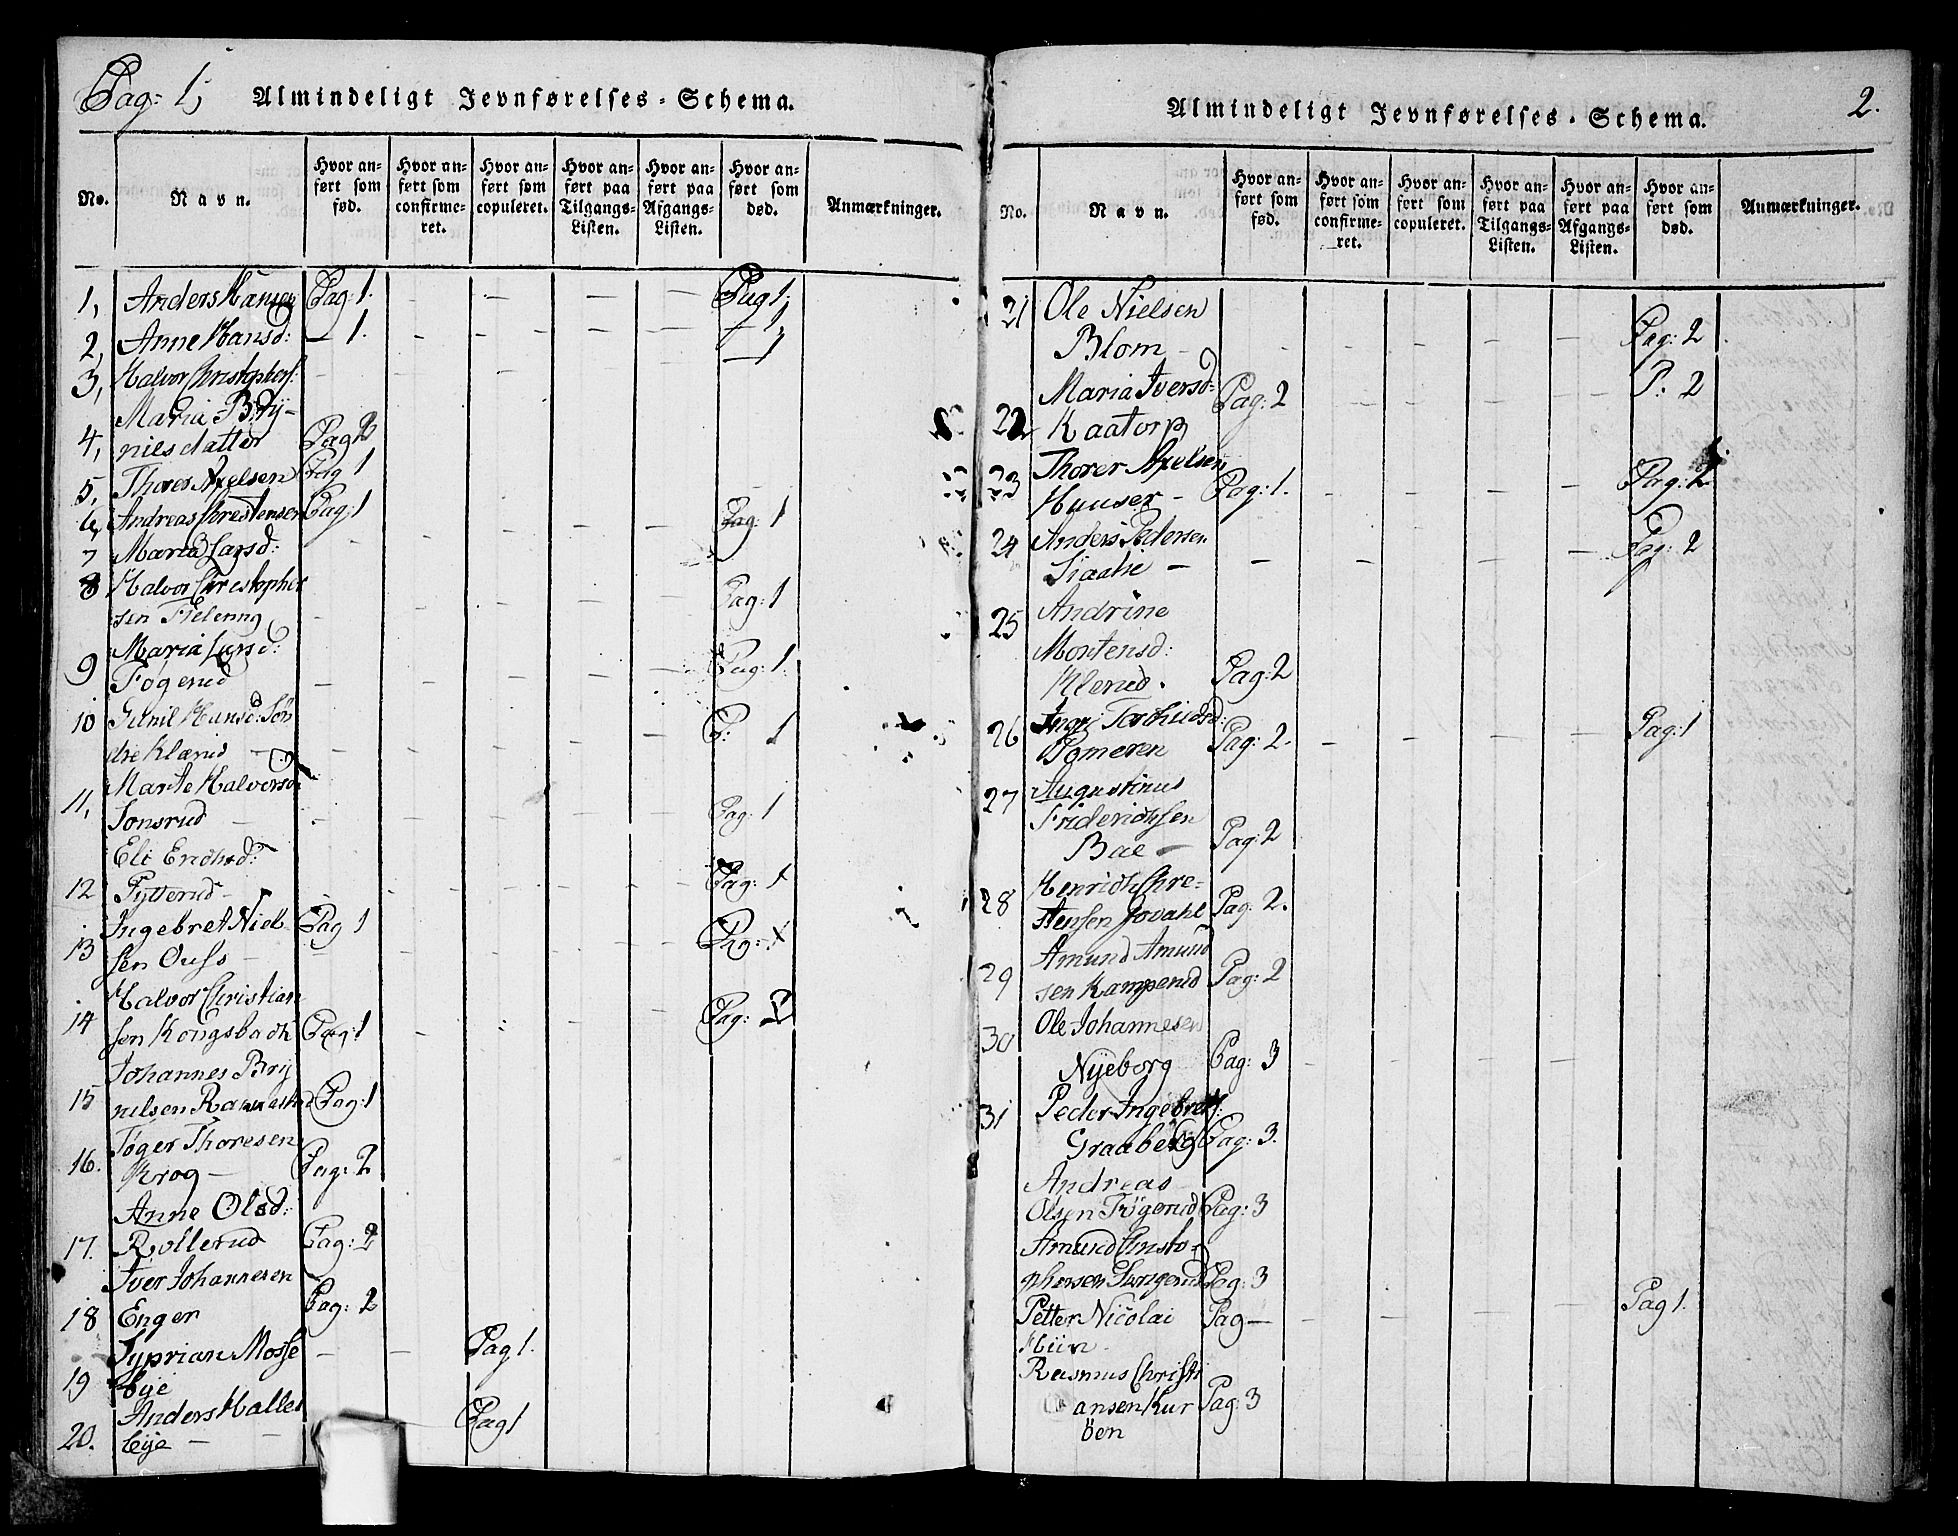 Pag: 1;
Almindeligt Jevnførelses-Schema.
No.
Navn.
Hvor anført som fød.
Hvor anført som confirmeret.
Hvor anført som copuleret.
Hvor anført paa Tilgangs-Listen.
Hvor anført paa Afgangs-Listen.
Hvor anført som død.
Anmærkninger.
1, Anders Hansen Pag: 1. Pag 1;
2, Anne Hansd: — 1. — 1
3, Halvor Christophers: — 1
Maria Bry-
4, nilsdatter Pag 2
5, Thorer Axelsen Pag 1
6, Andreas Chrestensen Pag: 1 Pag: 1
7 Maria Larsd:
8 Halvor Christopher
sen Pag: 1
Maria Larsd:
9 Føgerud Pag: 1.
10 Gunil Hansd: Søn
dre Klærud P: 1
Marte Halvorsd
11, Sonsrud Pag: 1
Eli
12 Pytterud Pag: 1
Ingebret Niel
13 sen Pag 1 Pag: 1
Halvor Christian
14 sen Kongsbach Pag: 1 Pag:
Johannes Bry
15 nilsen Pag: 1
Thoresen
16. Krog — Pag: 2
Anne Olsd:
17. Rollerud Pag: 2
Iver Johannesen
18 Enger Pag: 2
Syprian Mosse
19 Eye Pag 1.
Anders Halle
20. Eye Pag 1
2.
Almindeligt Jevnførelses-Schema.
No.
Navn.
Hvor anført som fød.
Hvor anført som confirmeret.
Hvor anført som copuleret.
Hvor anført paa Tilgangs-Listen.
Hvor anført paa Afgangs-Listen.
Hvor anført som død.
Anmærkninger.
21 Ole Nielsen
Blom Pag: 2
Maria Iversd:
22 Kaatorp Pag: 2 P: 2
23 Thorer Axelsen
Huuser — Pag: 1. Pag: 2
24 Anders Pedersen
— Pag: 2
25 Andrine
Mortensd:
Klerud. Pag: 2
26 Pomeren Pag: 2. Pag: 1
27 Augustinus
Friderichsen
Bae — Pag: 2
28 Henrich Chre-
stensen Pag: 2.
29 Amund Amund
sen Kamperud Pag: 2
30 Ole Johannesen
Nyeborg Pag: 3
31 Peder Ingebrets:
Graaberg Pag: 3.
Andreas
Olsen Føgerud Pag: 3
Amund Christo-
phersen Pag: 3
Petter Nicolai Pag — Pag 1.
Rasmus Christi
ansen Pag: 3